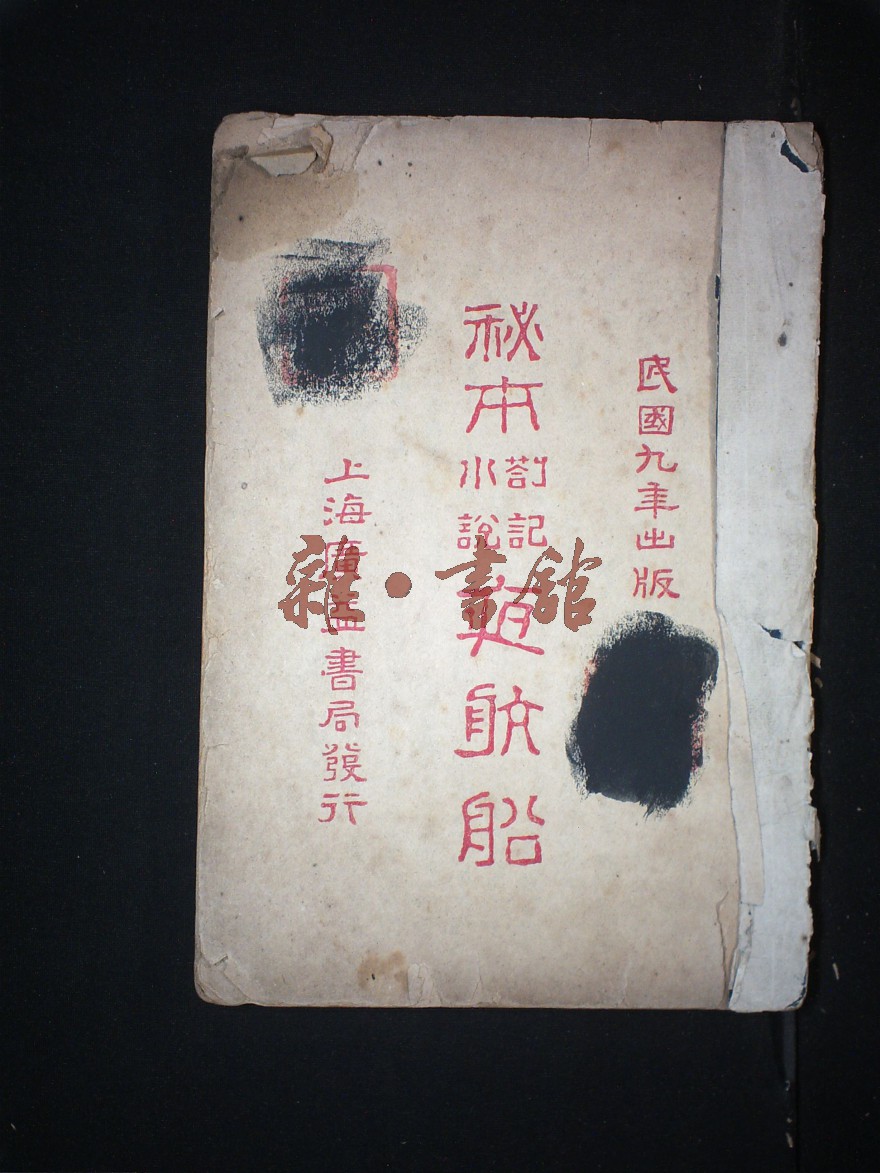 民國九年出版
秘本
劄記
小說
夜航船
上海廣益書局發行
雜·書館